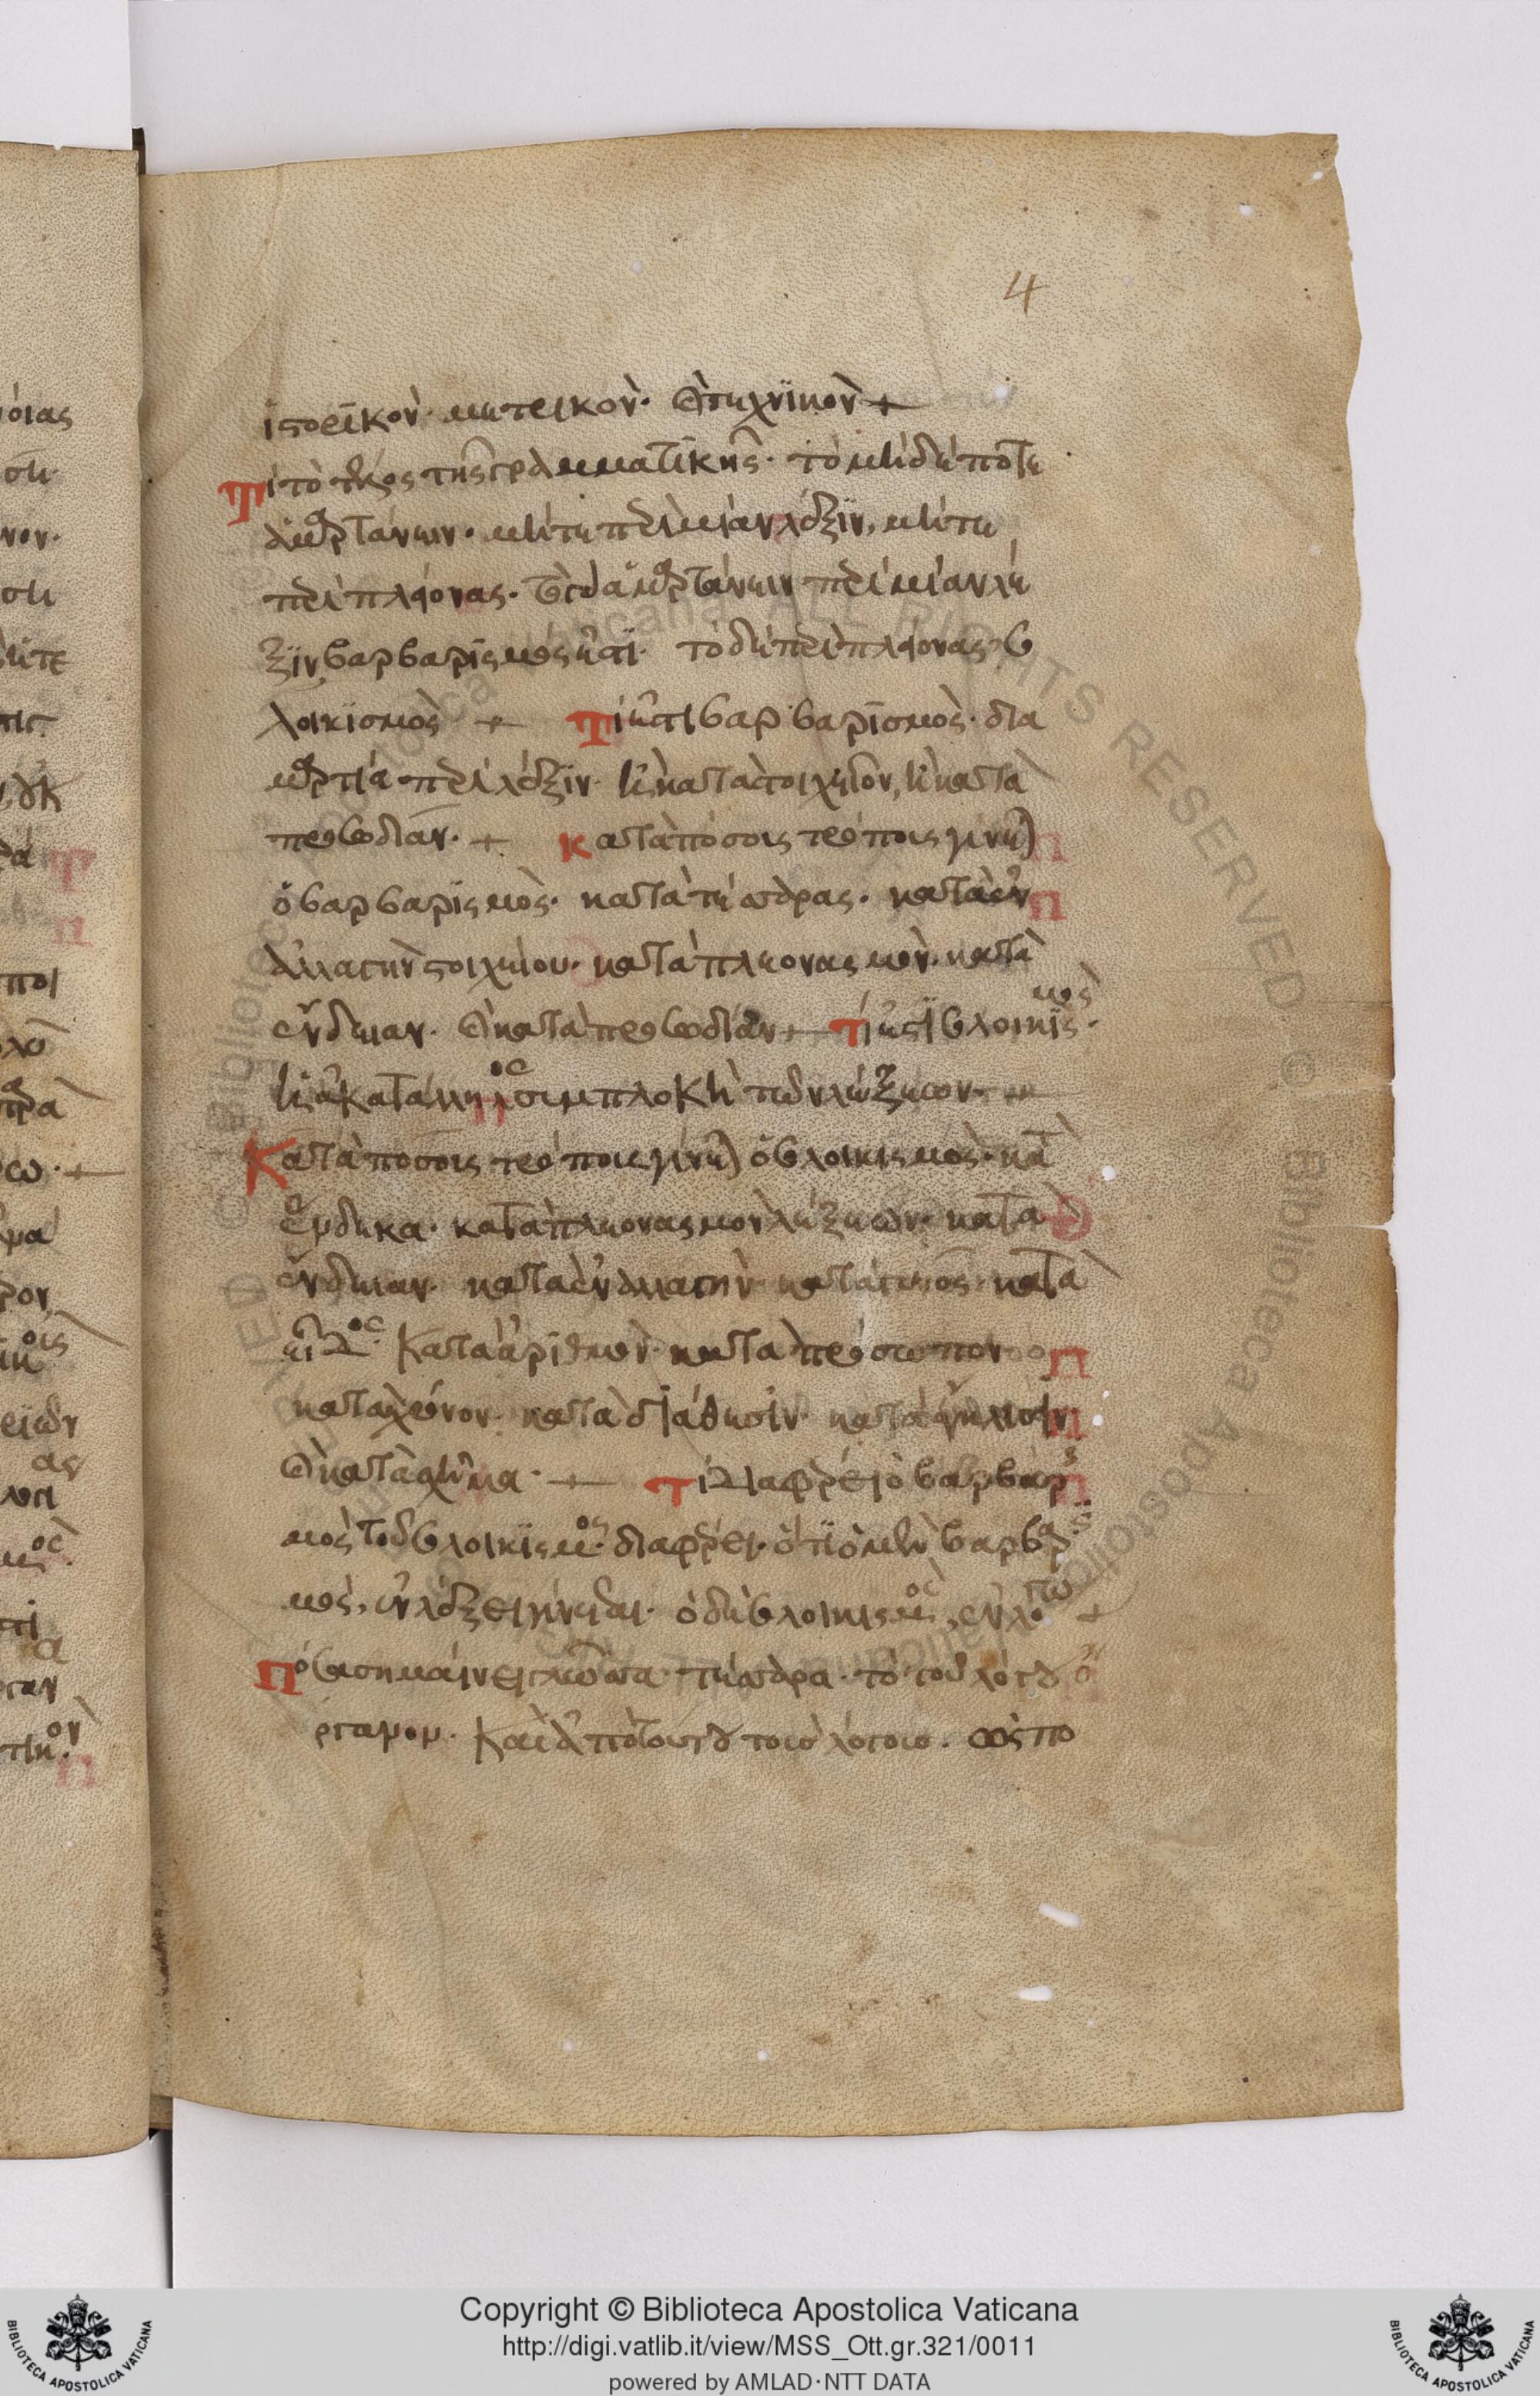 4
ἱστορικὸν· μετρικὸν· καὶ τεχνικὸν +
Τί τὸ τέλος τῆς γραμματικῆς· τὸ μηδέποτε
ἁμαρτάνειν· μήτε περὶ μίαν λέξιν, μήτε
περὶ πλείονας· τὸ γὰρ ἁμαρτάνειν περὶ μίαν λέ
ξιν, βαρβαρισμός ἐστι· τὸ δὲ περὶ πλείονας, σο
λοικισμὸς + Τί ἐστι βαρβαρισμὸς· δια
μαρτία περὶ λέξιν· ἢ κατὰ στοιχεῖον, ἢ κατὰ
προσωδίαν· + κατὰ πόσοις τρόποις γίνεται
ὁ βαρβαρισμὸς· κατὰ τέσσαρας· κατὰ ἐν
αλλαγὴν στοιχείου· κατὰ πλεονασμὸν· κατὰ
ἔνδειαν· καὶ κατὰ προσωδίαν + τί ἐστι σολοικισμὸς·
ἡ ἀκατάλληλος συμπλοκὴ τῶν λέξεων +
Κατὰ πόσοις τρόποις γίνεται ὁ σολοικισμὸς· κατὰ
ἕνδεκα· κατὰ πλεονασμὸν λέξεων· κατὰ
ἔνδειαν· κατὰ ἐναλλαγὴν· κατὰ γένος· κατὰ
εἶδος· κατὰ ἀριθμὸν· κατὰ πρόσωπον
κατὰ χρόνον· κατὰ διάθεσιν· κατὰ ἔγκλισιν·
καὶ κατὰ σχῆμα· + Τί διαφέρει ὁ βαρβαρισ
μὸς τοῦ σολοικισμοῦ· διαφέρει· ὅτι ὁ μὲν βαρβαρισ
μὸς, ἐν λέξει γίνεται· ὁ δὲ σολοικισμὸς, ἐν λόγω +
Πόσα σημαίνει γλῶσσα· τέσσαρα· τὸ τοῦ λόγου ὄ
ργανον· καὶ ἀπὸ τούτου τοὺς λόγους· ὡς πο
Copyright © Biblioteca Apostolica Vaticana
http://digi.vatlib.it/view/MSS_Ott.gr.321/0011
powered by AMLAD·NTT DATA
BIBLIOTECA APOSTOLICA VATICANA
BIBLIOTECA APOSTOLICA VATICANA